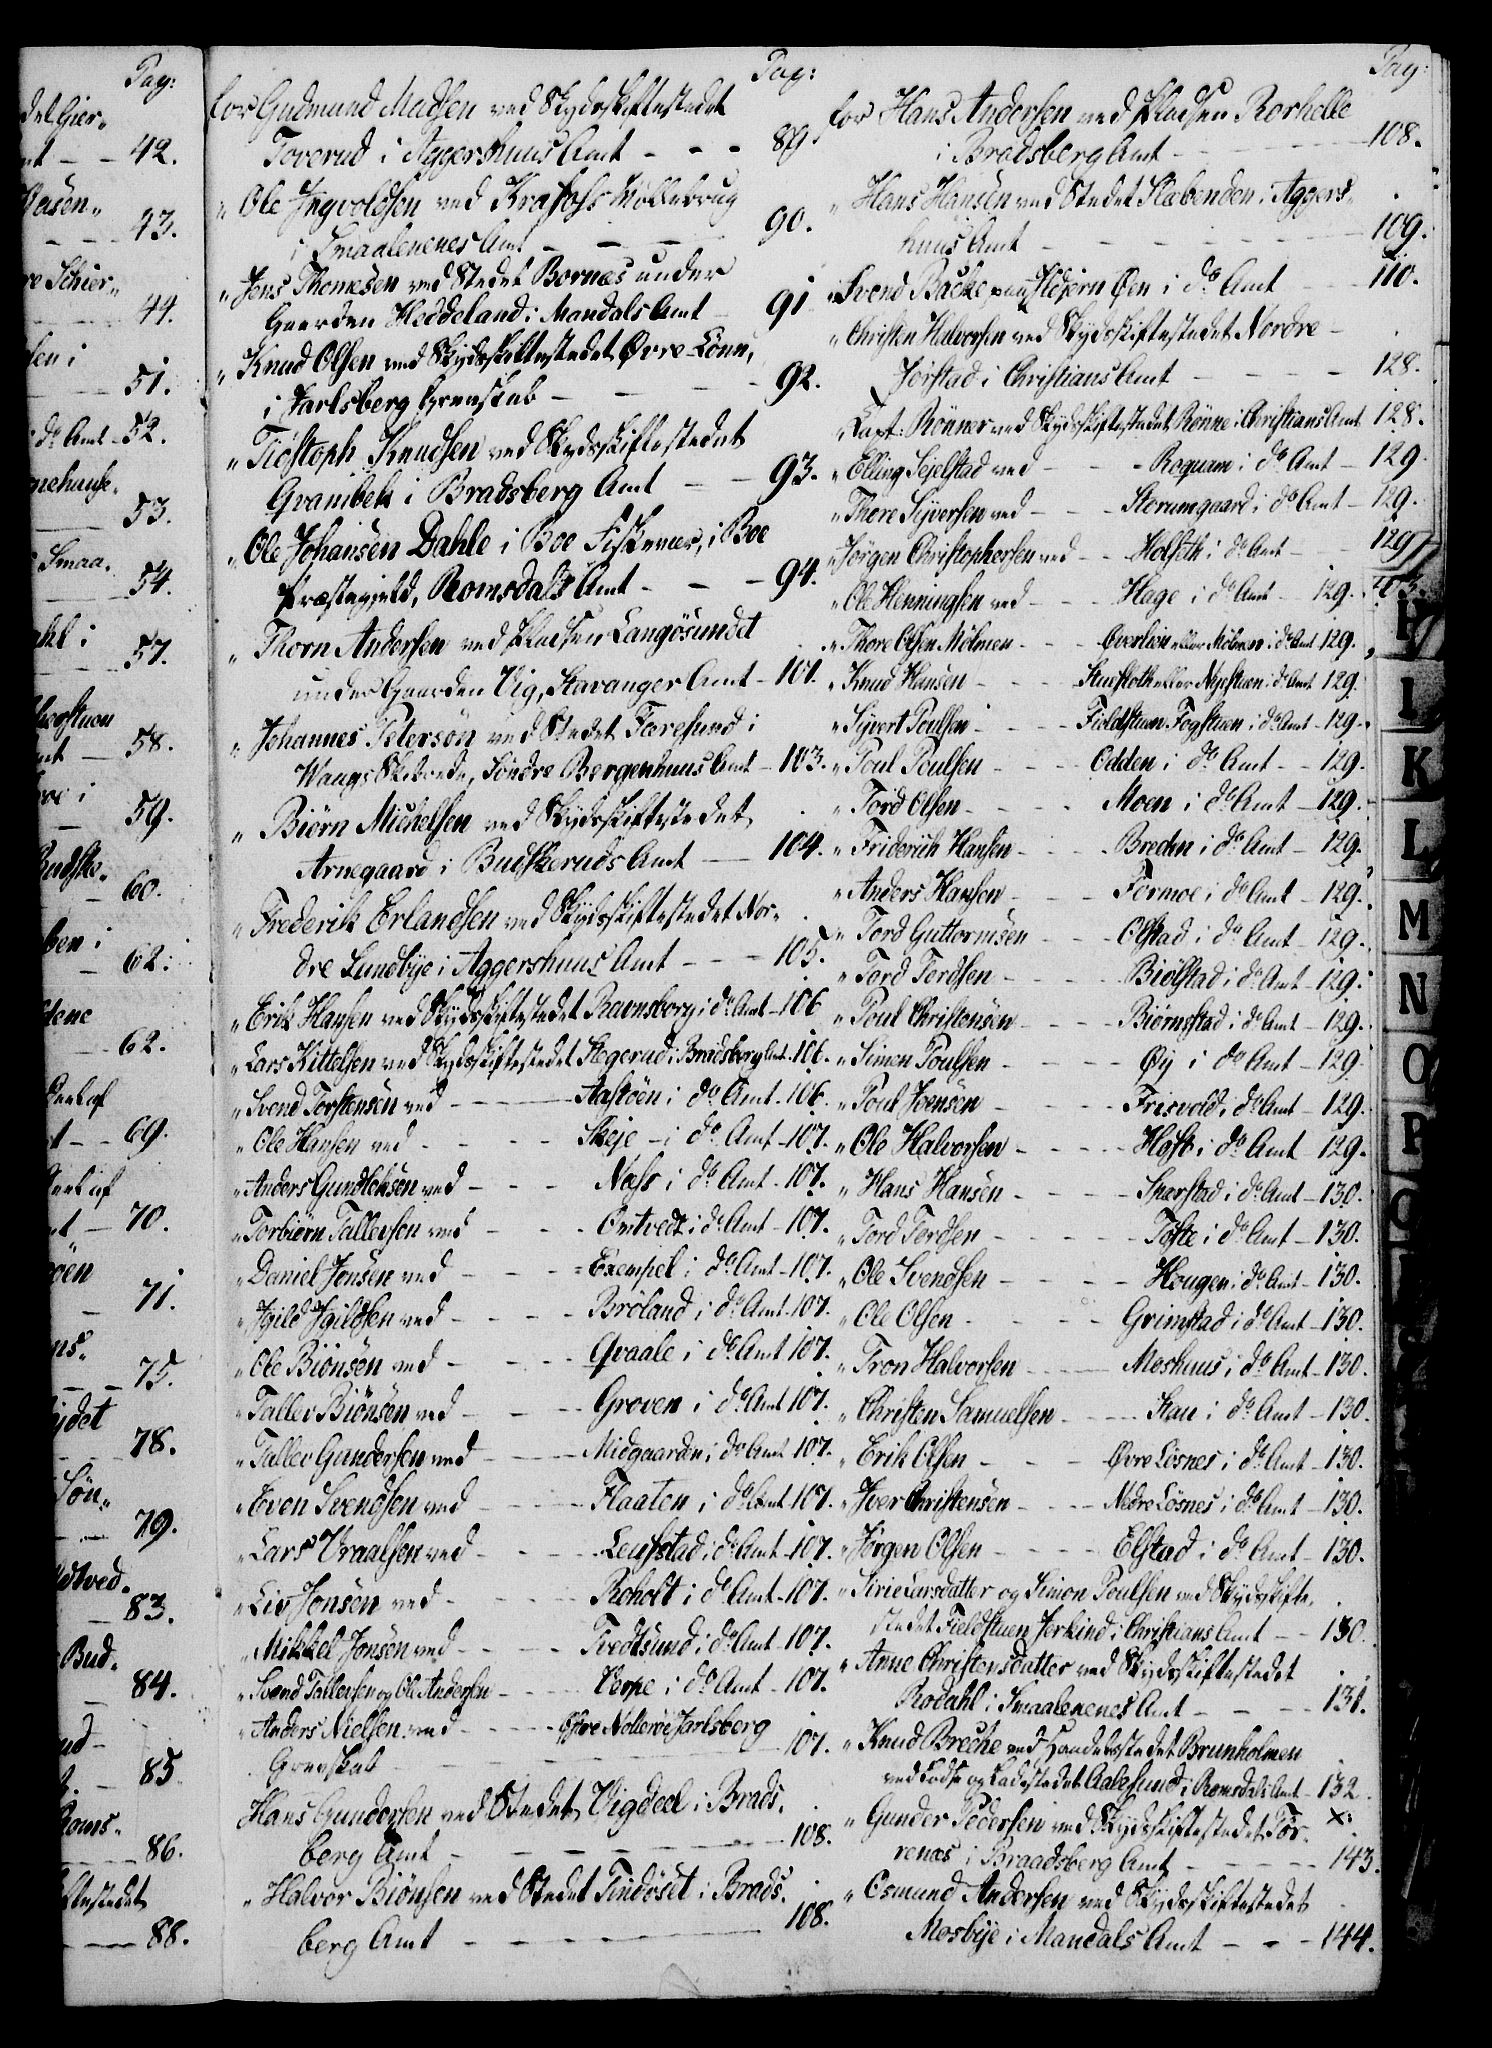 Pag:
det Gier-
42.
43.
44.
i
51.
do Amt 52.
53.
Smaa-
54.
i
57.
58.
i
59.
Budske-
60.
i
62.
62.
Deel af
69.
Deel af
70.
71.
75.
78.
Søn-
79.
83.
Bud-
84.
85.
Roms-
86.
88.
Pag:
for Gudmund Madsen ved Skydsskiftestedet
Toverud i Aggershuus Amt - - - 89.
" Ole Jngvoldsen ved Krafosss Møllebrug
i Smaalenenes Amt - - - 90.
" Jens Thomesen ved Stedet Bornæs under
Gaarden Heddeland i Mandals Amt - 91
" Knud Olsen ved Skydsskiftestedet Øvre-Lønn,
i Jarlsberg Grevskab - - - 92.
" Tiøstoph Knudsen ved Skydsskiftestedet
Granibek i Bradsberg Amt - - 93.
" Ole Johansen Dahle i Boe Fiskevær, i Boe
Præstegjeld, Romsdals Amt - - - 94.
" Thorn Andersen ved Pladsen Langøsundet
under Gaarden Vig, Stavanger Amt - 101.
" Johannes Petersøn ved Stedet Foresund i
Waags Skibrede, Søndre Bergenhuus Amt - 103.
" Biørn Michelsen ved Skydsskiftestedet
Arnegaard i Budskeruds Amt - 104.
" Frederik Erlandsen ved Skydsskiftestedet Nor-
dre Lundbye i Aggershuus Amt - - - 105.
" Erik Hansen ved Skydsskiftestedet Ravnsborg i do Amt - 106
" Lars Kittelsen ved Skydsskiftestedet Stogerud i Bradsberg Amt - 106.
" Svend Torstensen ved - - - Aastøen i do Amt - 106.
" Ole Hansen ved - - - Skeje - i do Amt - 107.
" Anders Gundleksen ved - - - Næss i do Amt - 107.
" Torbiørn Tallevsen ved - - - Omtvedt i do Amt - 107.
" Daniel Jensen ved - - - Exempel i do Amt - 107.
" Jgild Jgildsen ved - - - Brøland i do Amt - 107.
" Ole Biønsen ved - - - Qvaale i do Amt 107.
" Tallev Biønsen ved - - - Groven i do Amt 107.
" Tallev Gundersen ved - - - Midgaarde i do Amt 107.
" Even Svendsen ved - - - Flaaten i do Amt 107.
" Lars Vraalsen ved - - - Leufstad i do Amt - 107.
" Liv Jonsen ved - - - Roholt i do Amt - 107.
" Mikkel Jonsen ved - - - Tvedtsund i do Amt - 107.
" Svend Tallevsen og Ole Andersen - - - Verpe i do Amt - 107.
" Anders Nielsen ved - - - Øfre Nollerøe Jarlsberg
Grevskab - - - 107.
Hans Gundersen ved Stedet Vigdeel i Brads-
berg Amt - - - 108.
" Halvor Biønsen ved Stedet Tindøset i Brads-
berg Amt - - - 108.
Pag:
for Hans Andersen ved Pladsen Rørhelle
i Bradsberg Amt - - - 108.
" Hans Hansen ved Stedet Slabenden i Aggers-
huus Amt - - - 109.
" Svend Backe paa Ildjern Øen i do Amt - - 110.
" Christen Halvorsen ved Skydsskiftestedet Nordre -
Jørstad i Christians Amt - - - 128.
" Capt: Rønner ved Skydsskiftestedet Rønne i Christians Amt 128.
" Elling Sejelstad ved - - - Roquam i do Amt - 129
" Thore Syversen ved - - - Storumgaard i do Amt - 129.
" Jørgen Christophersen ved - - Holseth i do Amt - - 129
" Ole Henningsen ved - - - Hage i do Amt - 129. 403.
" Thore Olsen Mølmen - - - Overlien eller Mølmen i do Amt 129.
" Knud Hansen - - - Stueflothe eller Nystuen i do Amt 129.
" Syvert Poulsen - - - Fieldstuen Fogstuen i do Amt - 129.
" Poul Poulsen - - - Odden i do Amt - - 129.
" Tord Olsen - - - Moen i do Amt - 129.
" Friderich Hansen - - - Breden i do Amt - 129.
" Anders Hansen - - - Formoe i do Amt - 129.
" Tord Guttormsen - - - Olstad i do Amt - 129.
" Tord Tordsen - - - Biølstad i do Amt - 129.
" Poul Christensen - - - Biørnstad i do Amt - 129.
" Simen Poulsen - - - Øy i do Amt - 129.
" Poul Joensen - - - Frisvold i do Amt - 129.
" Ole Halvorsen - - - Hofft i do Amt - 129.
" Hans Hansen - - - Sperstad i do Amt - 130.
" Tord Tordsen - - - Tofte i do Amt - 130.
" Ole Svendsen - - - Hougen i do Amt - 130.
" Ole Olsen - - - Grimstad i do Amt - 130.
" Tron Halvorsen - - - Moshuus i do Amt - 130.
" Christen Samuelsen - - - Stav i do Amt - 130.
" Erik Olsen - - - Øvre Løsnes i do Amt - 130.
" Jver Christensen - - - Nedre Løsnes i do Amt - 130.
" Jørgen Olsen - - - Elstad i do Amt - 130.
" Sirie Larsdatter og Simon Poulsen ved Skydsskifte-
stedet Fieldstuen Jerkind i Christians Amt - - 130.
" Anne Christensdatter ved Skydsskiftestedet
Rødahl i Smaalenenes Amt - - - 131.
" Knud Breche ved Handelsstedet Brunholmen
ved Lodse og Ladestedet Aalesund i Romsdals Amt - 132.
" Gunder Pedersen ved Skydsskiftestedet Tør- x:
renæs i Braadsberg Amt - - - 143.
" Osmund Andersen ved Skydsskiftestedet
Mosbye i Mandals Amt - - - 144.
H
I
K
L
M
N
O
P
Q